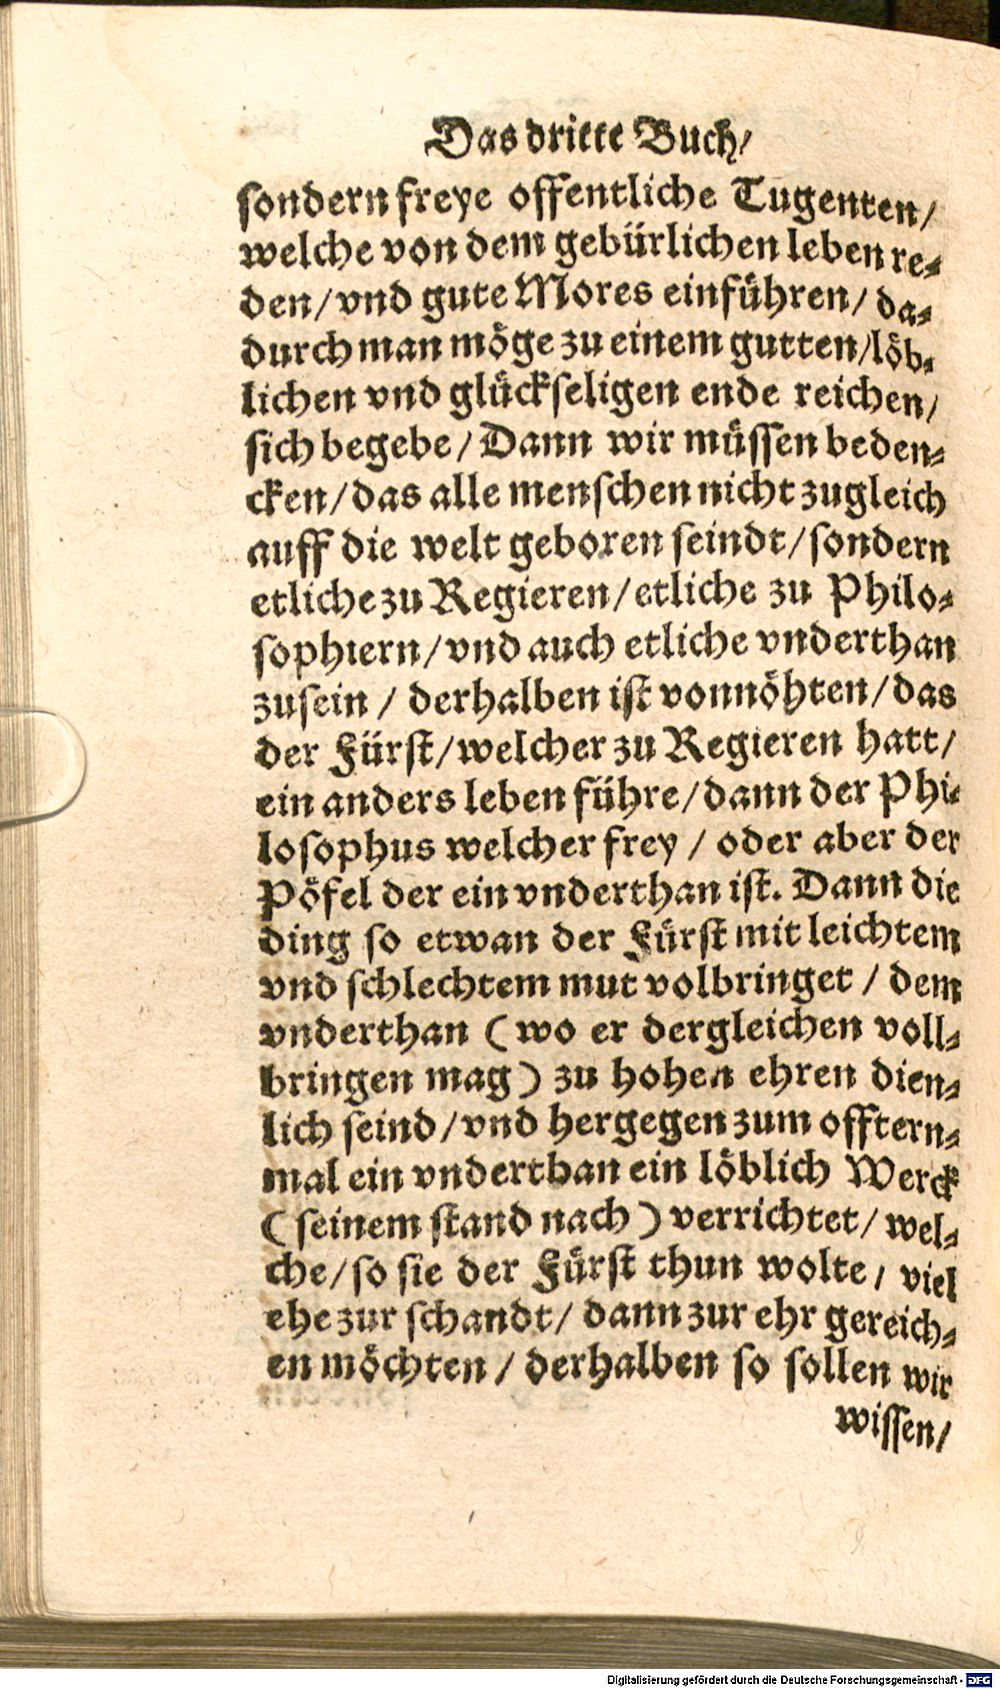 Das dritte Buch/
sondern freye offentliche Tugenten/
welche von dem gebürlichen leben re⸗
den/vnd gute Mores einführen/da⸗
durch man möge zu einem gutten/löb⸗
lichen vnd glückseligen ende reichen/
sich begebe/Dann wir müssen beden⸗
cken/das alle menschen nicht zugleich
auff die welt geboren seindt/sondern
etliche zu Regieren/etliche zu Philo⸗
sophiern/vnd auch etliche vnderthan
zusein / derhalben ist vonnöhten/das
der Fürst/welcher zu Regieren hatt/
ein anders leben führe/dann der Phi⸗
losophus welcher frey / oder aber der
Pöfel der ein vnderthan ist. Dann die
ding so etwan der Fürst mit leichtem
vnd schlechtem mut volbringet / dem
vnderthan (wo er dergleichen voll⸗
bringen mag) zu hohen ehren dien⸗
lich seind/vnd hergegen zum offtern⸗
mal ein vnderthan ein löblich Werck
(seinem stand nach) verrichtet/wel⸗
che/so sie der Fürst thun wolte/viel
ehe zur schandt/dann zur ehr gereich⸗
en möchten / derhalben so sollen wir
wissen/
Digitalisierung gefördert durch die Deutsche Forschungsgemeinschaft - DFG